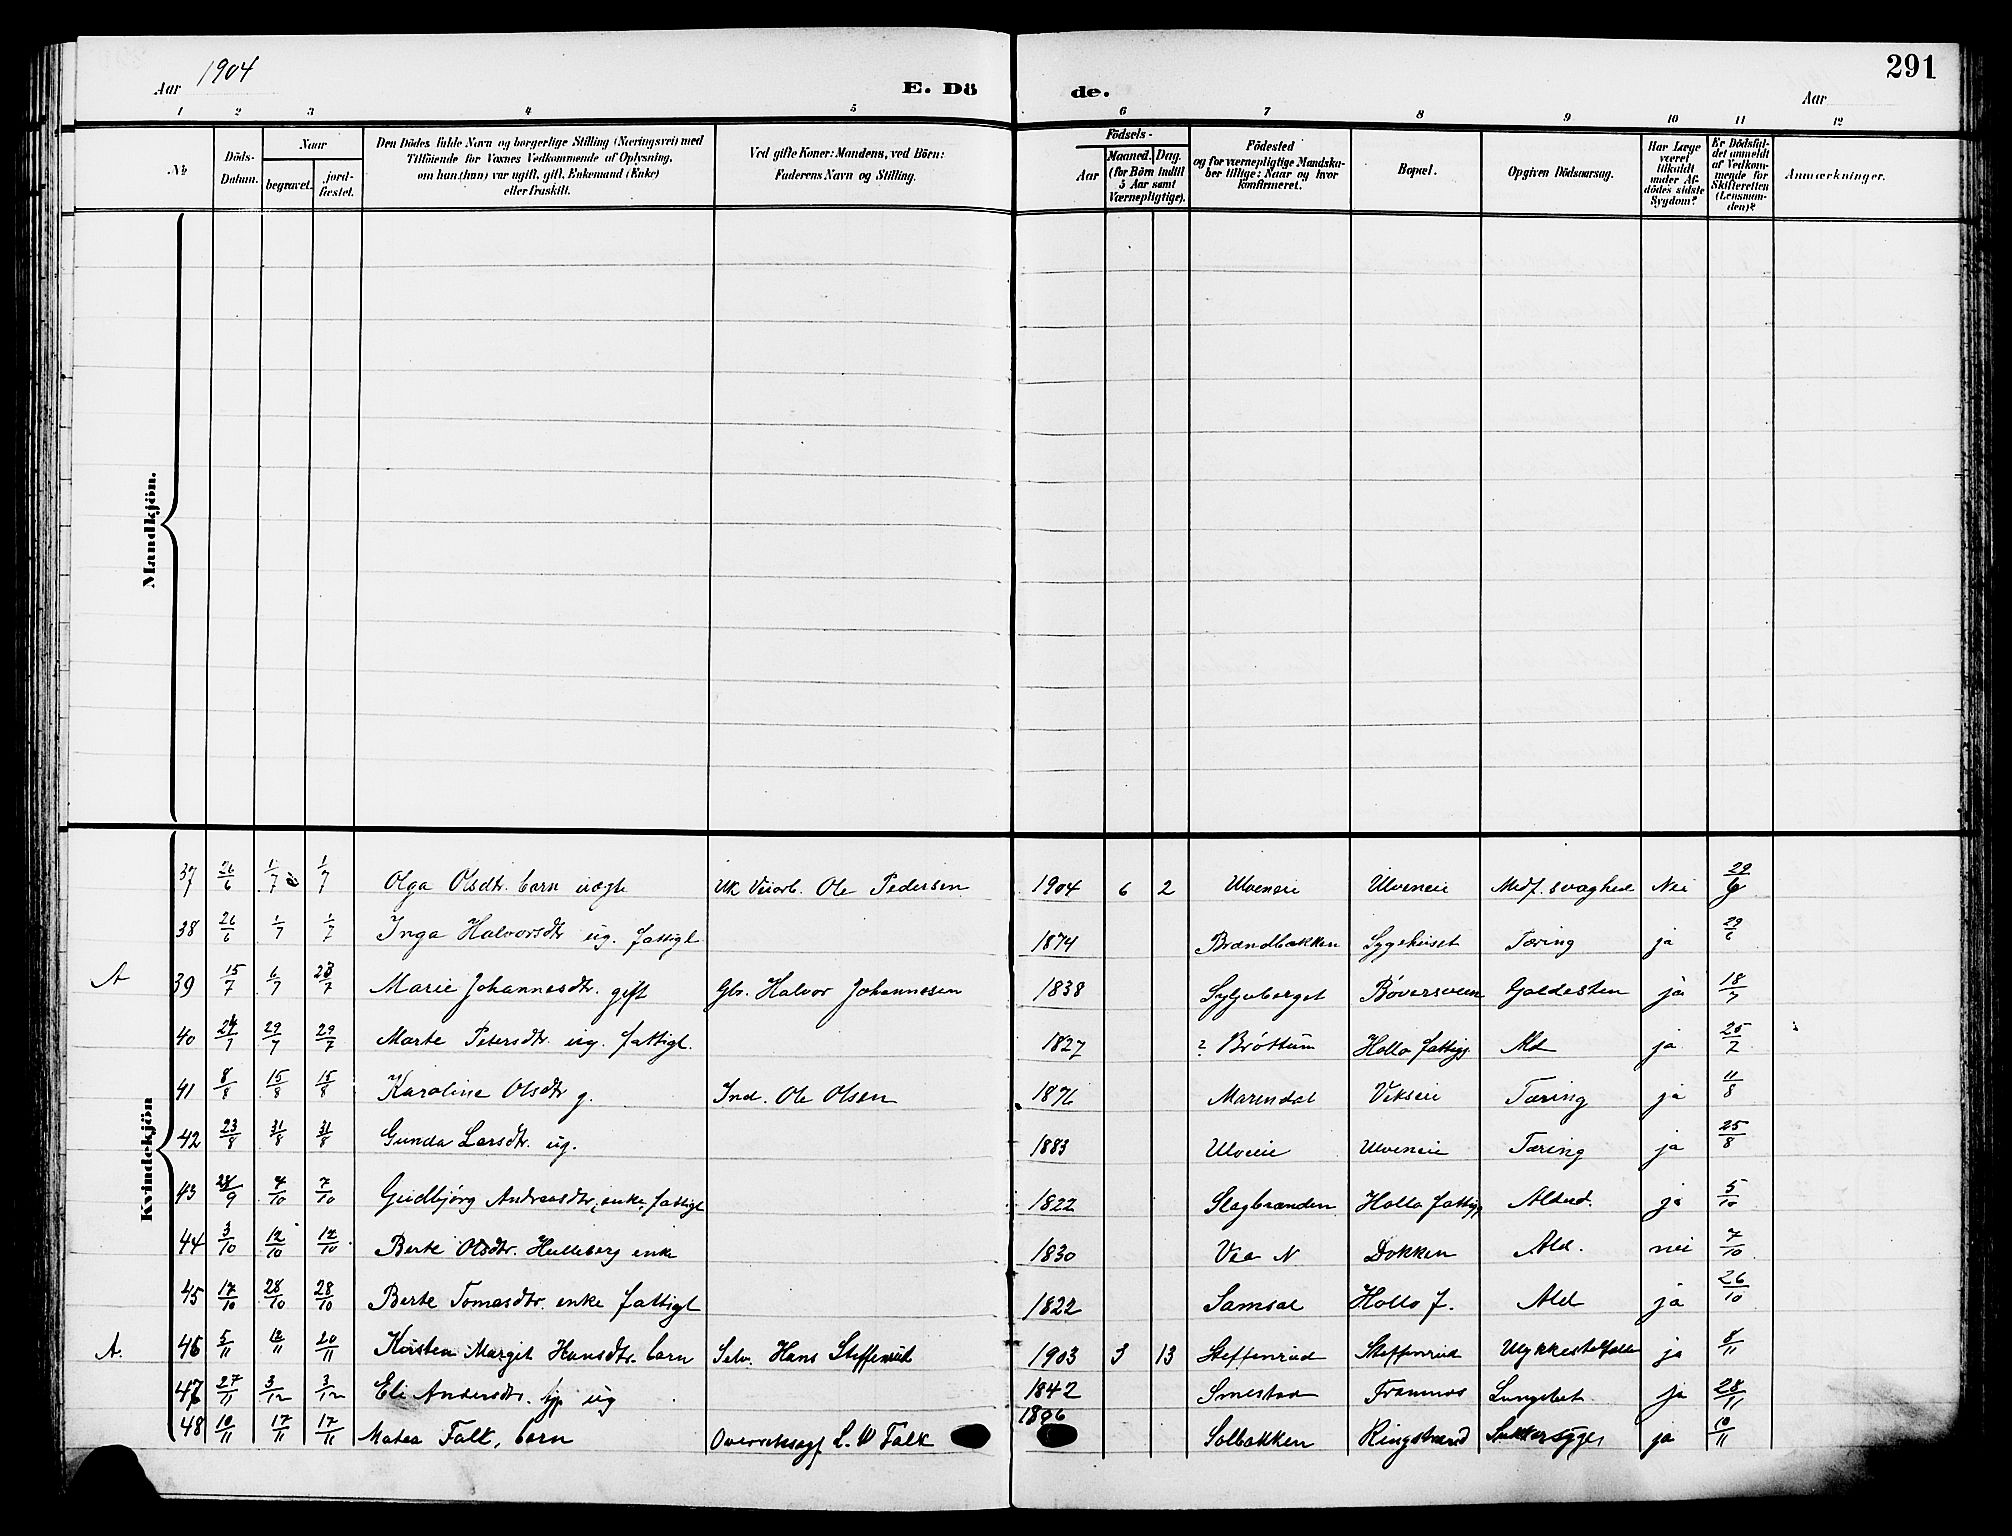 291
Aar 1904 E. Dö de. Aar
1 2 3 4 5 6 7 8 9 10 11 12
№
Döds-
Datum.
Naar
begravet.
jord-
fæstet.
Den Dödes fulde Navn og borgerlige Stilling (Næringsvei) med
Tilföiende for Voxnes Vedkommende af Oplysning,
om han (hun) var ugift, gift, Enkemand (Enke)
eller fraskilt.
Ved gifte Koner: Mandens, ved Börn:
Faderens Navn og Stilling.
Födsels-
Aar
Maaned. Dag.
(for Börn indtil
5 Aar samt
Værnepligtige).
Födested
og for værnepligtige Mandska-
ber tillige: Naar og hvor
konfirmeret.
Bopæl.
Opgiven Dödsaarsag.
Har Læge
været
tilkaldt
under Af-
dödes sidste
Sygdom?
Er Dödsfal-
det anmeldt
af Vedkom-
mende for
Skifteretten
(Lensman-
den)?
Anmærkninger.
Mandkjön.
Kvindekjön
37 26/6 1/7 1/7 Olga Olsdtr. barn uægte Ole Pedersen 1904 6 2 Ulveneie Ulveneie Medf. svaghed Nei 29/6
38 26/6 1/7 1/7 Inga Halvorsdtr ug. fattigl 1874 Brændbakken Sygehuset Tæring ja 29/6
A 39 15/7 6/7 23/7 Marie Johannesdtr. gift Gbr. Halvor Johannesen 1838 Syljuberget Böversveen Galdesten ja 18/7
40 24/7 29/7 29/7 Marte Petersdtr. ug. fattigl. 1827 ? Bröttum Hollo fattigg. Ald ja 25/7
41 8/8 15/8 15/8 Karoline Olsdtr g. Ind. Ole Olsen 1876 Marendal Vikseie Tæring ja 11/8
42 23/8 31/8 31/8 Gunda Larsdtr. ug. 1883 Ulveeie Ulveneie Tæring ja 25/8
43 28/9 4/10 7/10 Gudbjörg Andreasdtr, enke, fattigl 1822 Slagbrænden Hollo fattigg Alderd. ja 5/10
44 3/10 12/10 12/10 Berte Olsdtr. Hulleberg enke 1830 Vea N. Dokken Ald. nei 7/10
45 17/10 28/10 28/10 Berte Tomasdtr. enke fattigl 1822 Samsal Hollo f. Ald ja 26/10
A. 46 5/11 12/11 20/11 Kirsten Margit Hansdtr. barn Selv. Hans Steffenrud 1903 3 13 Steffenrud Steffenrud Ulykkestilfælde ja 8/11
47 27/11 3/12 3/12 Eli Andersdtr. ug 1842 Smestad Framnes Lungebet ja 28/11
48 10/11 17/11 17/11 Matea Falk, barn L. W Falk 1896 Solbakken Ringstrand Sukkersyge, ja 10/11